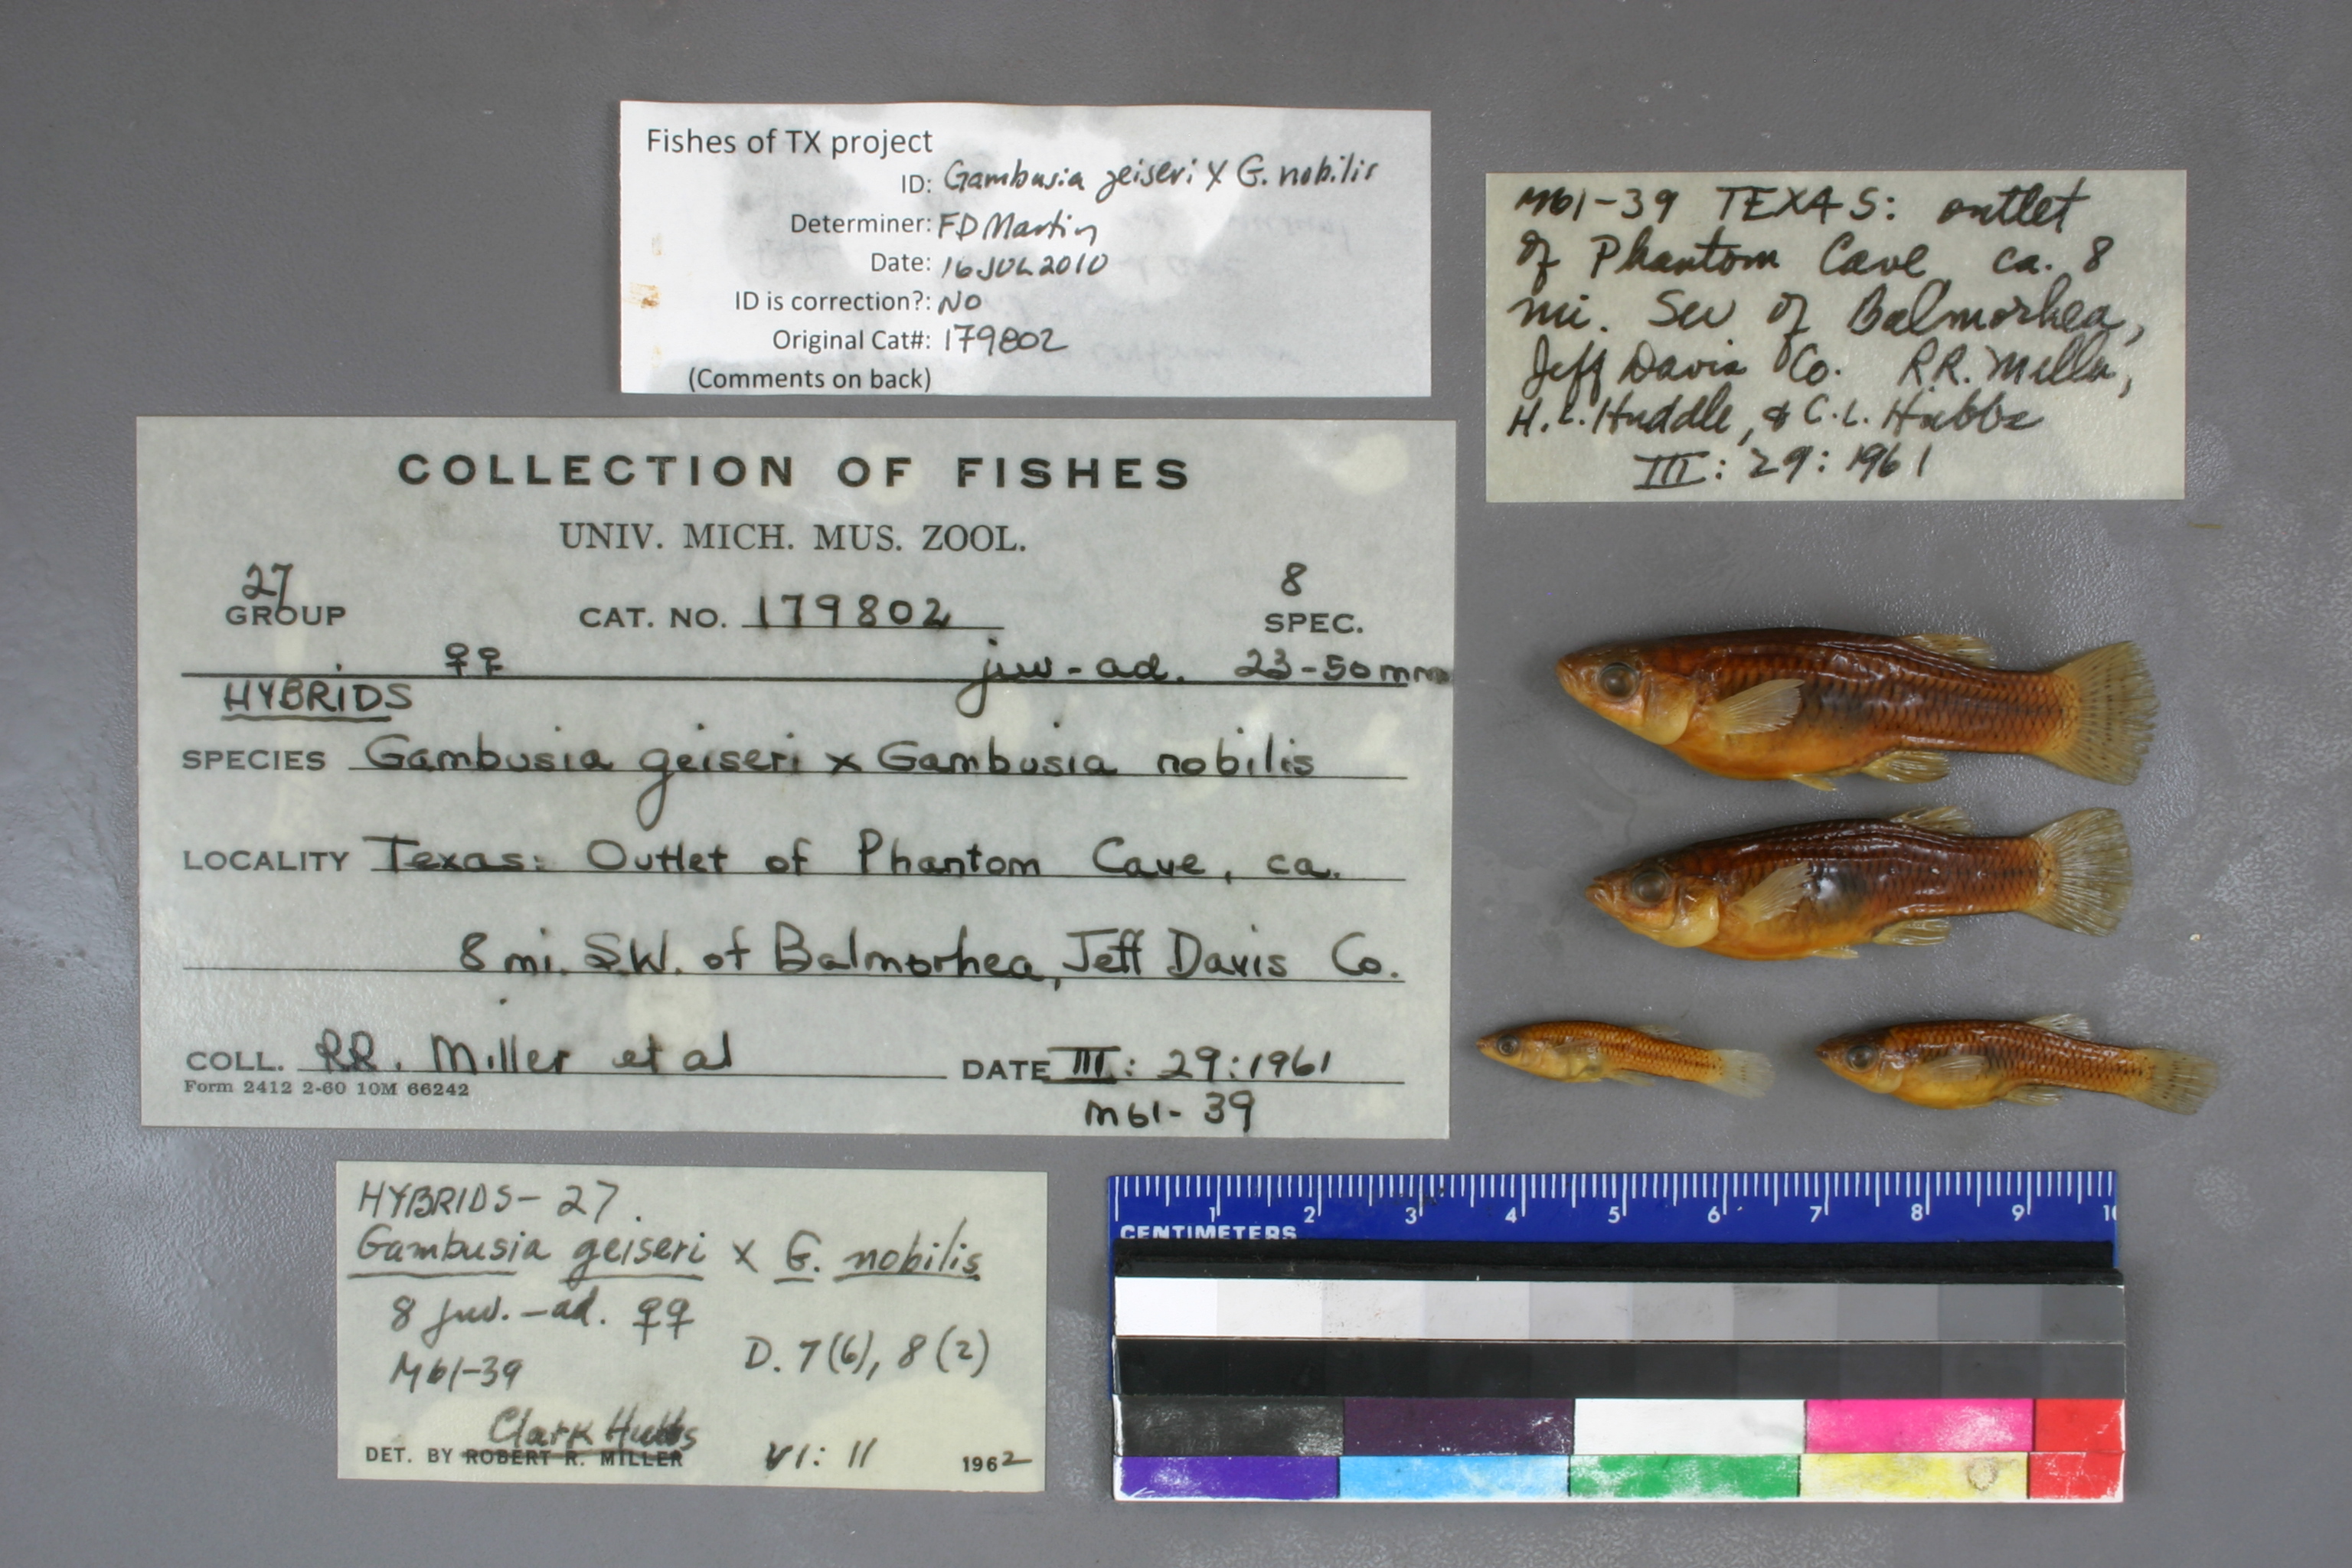 Fishes of TX project
ID: Gambusia geiseri X G. nobilis
Determiner: FD Martin
Date: 16 JUL 2010
ID is correction?: NO
Original Cat#: 179802
(Comments on back)
M61-39 TEXAS: outlet
of Phantom Cave ca. 8
mi. SW of Balmorhea,
Jeff Davis Co. R.R. Miller,
H.L. Huddle, & C.L. Hubbs
III: 29: 1961
COLLECTION OF FISHES
UNIV. MICH. MUS. ZOOL.
27 8
GROUP CAT. NO. 179802 SPEC.
♀♀ juv-ad. 23-50mm
HYBRIDS
SPECIES Gambusia geiseri x Gambusia nobilis
LOCALITY Texas: Outlet of Phantom Cave, ca.
8 mi. SW. of Balmorhea, Jeff Davis Co.
COLL. R.R. Miller et al DATE III: 29:1961
Form 2412 2-60 10M 66242
M61-39
HYBRIDS-27.
Gambusia geiseri x G. nobilis
8 juv.-ad. ♀♀
M61-39 D. 7(6), 8(2)
Clark Hubbs
DET. BY ROBERT R. MILLER VI: 11 1962
1 2 3 4 5 6 7 8 9 10
CENTIMETERS